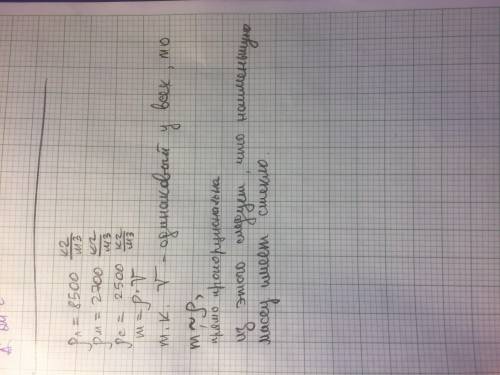 ρл = 8500 кг/м3
ρм = 2700 кг/м3
ρс = 2500 кг/м3
m = ρ·V
т.к. V - одинаковый у всех, то
m ~ ρ,
прямо пропорциональна
из этого следует, что наименьшую
массу имеет стекло.